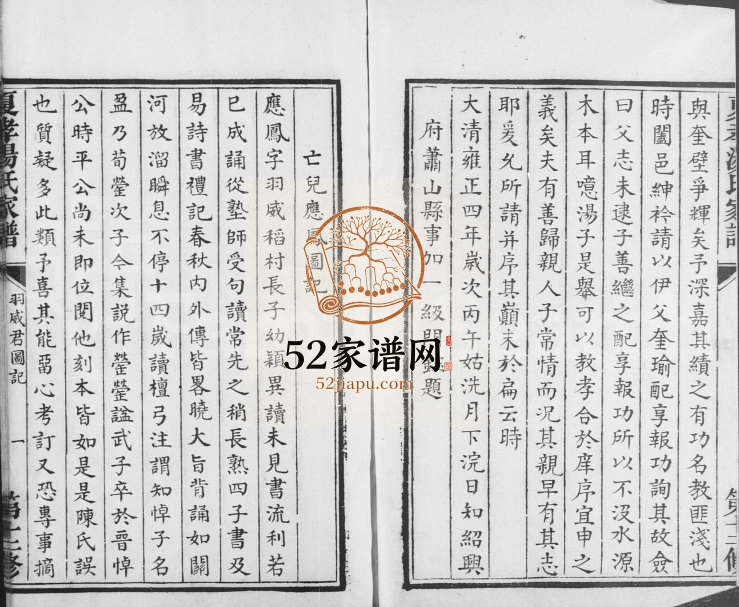 與奎壁爭輝矣予深嘉其績之有功名教匪淺也
時闔邑紳衿請以伊父奎瑜配享報功詢其故僉
曰父志未逮子善繼之配享報功所以不没水源
木本耳噫湯子是舉可以教孝合於庠序宜申之
義矣夫有善歸親人子常情而况其親早有其志
耶爰允所請并序其巔末於扁云時
大清雍正四年歲次丙午姑洗月下浣日知紹興
府蕭山縣事加一級門題
亡兒應鳳圖記
應鳳字羽威稻村長子幼穎異讀未見書流利若
已成誦從塾師受句讀常先之稍長熟四子書及
易詩書禮記春秋内外傳皆畧曉大旨背誦如關
河放溜瞬息不停十四歲讀檀弓注謂知悼子名
盈乃荀罃次子今集說作罃罃諡武子卒於晉悼
公時平公尚未即位閱他刻本皆如是是陳氏誤
也質疑多此類予喜其能畱心考訂又恐專事摘
夏孝湯氏家譜
羽威君圖記
一
第十三修
夏孝湯氏家譜
第十三修
52家谱网
52jiapu.com